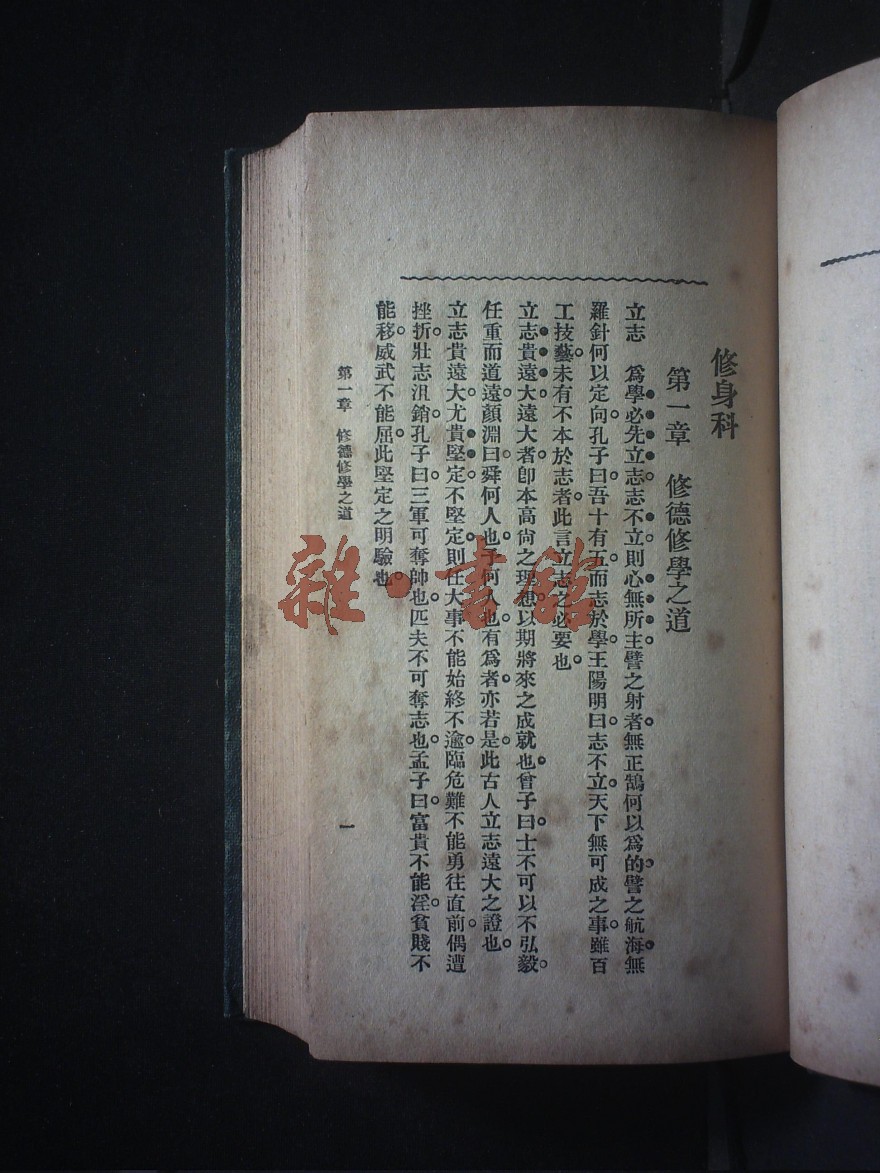 修身科
第一章 修德修學之道
立志 爲學必先立志志不立則心無所主譬之射者無正鵠何以爲的譬之航海無
羅針何以定向孔子曰吾十有五而志於學王陽明曰志不立天下無可成之事雖百
工技藝未有不本於志者此言立志之必要也
立志貴遠大遠大者卽本高尙之理想以期將來之成就也曾子曰士不可以不弘毅
任重而道遠顏淵曰舜何人也予何人也有爲者亦若是此古人立志遠大之證也
立志貴遠大尤貴堅定不堅定則任大事不能始終不逾臨危難不能勇往直前偶遭
挫折壯志汛銷孔子曰三軍可奪帥也匹夫不可奪志也孟子曰富貴不能淫貧賤不
能移威武不能屈此堅定之明驗也
第一章 修德修學之道 一
雜·書館